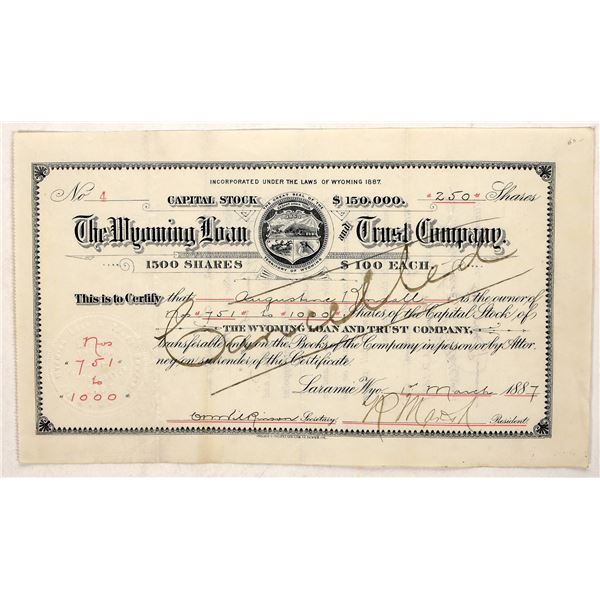 60-
INCORPORATED UNDER THE LAWS OF WYOMING 1887.
No 4 CAPITAL STOCK $150,000. "250" Shares
The Wyoming Loan and Trust Company.
1500 SHARES $100 EACH.
THE GREAT SEAL OF THE TERRITORY OF WYOMING
This is to Certify that Augustine Kendall is the owner of
Nos "751" to "1000" Shares of the Capital Stock of
THE WYOMING LOAN AND TRUST COMPANY,
transferable only on the Books of the Company in person or by Attor-
ney on surrender of this Certificate.
Laramie Wyo. 17 March 1887
Secretary President
Cancelled
Nos
"751"
to
"1000"